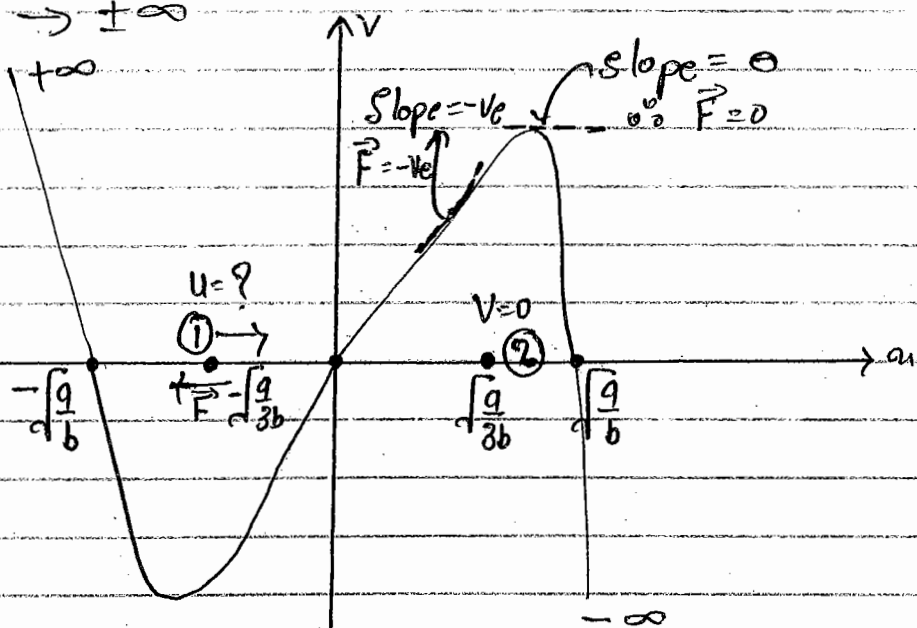 → ±∞
+∞
V
slope = 0
∴ F⃗ = 0
Slope = -ve
F⃗ = -ve
u = ?
① →
V=0
②
x
-√(a/b)
F⃗
-√(a/3b)
√(a/3b)
√(a/b)
-∞